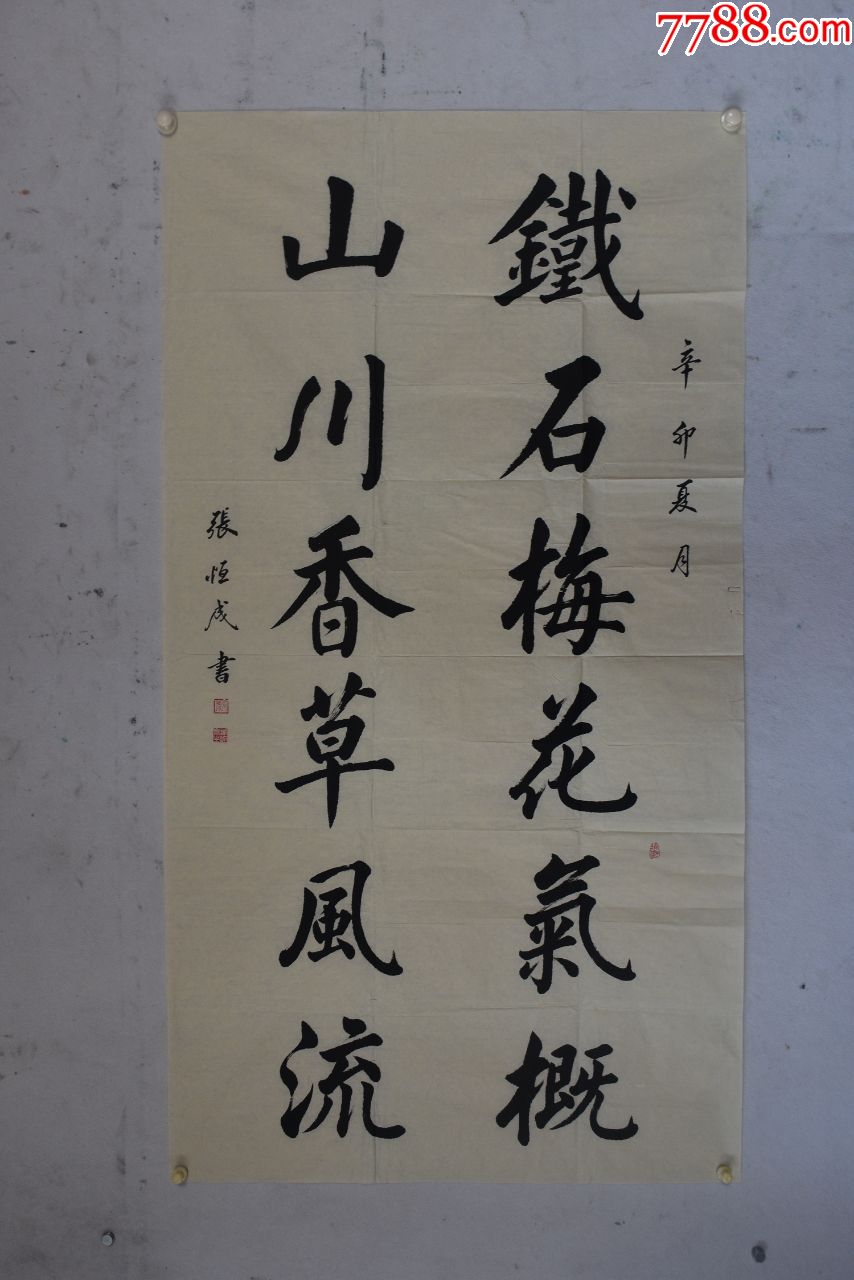 7788.com
辛卯夏月
鐵石梅花氣概
山川香草風流
張恒成書